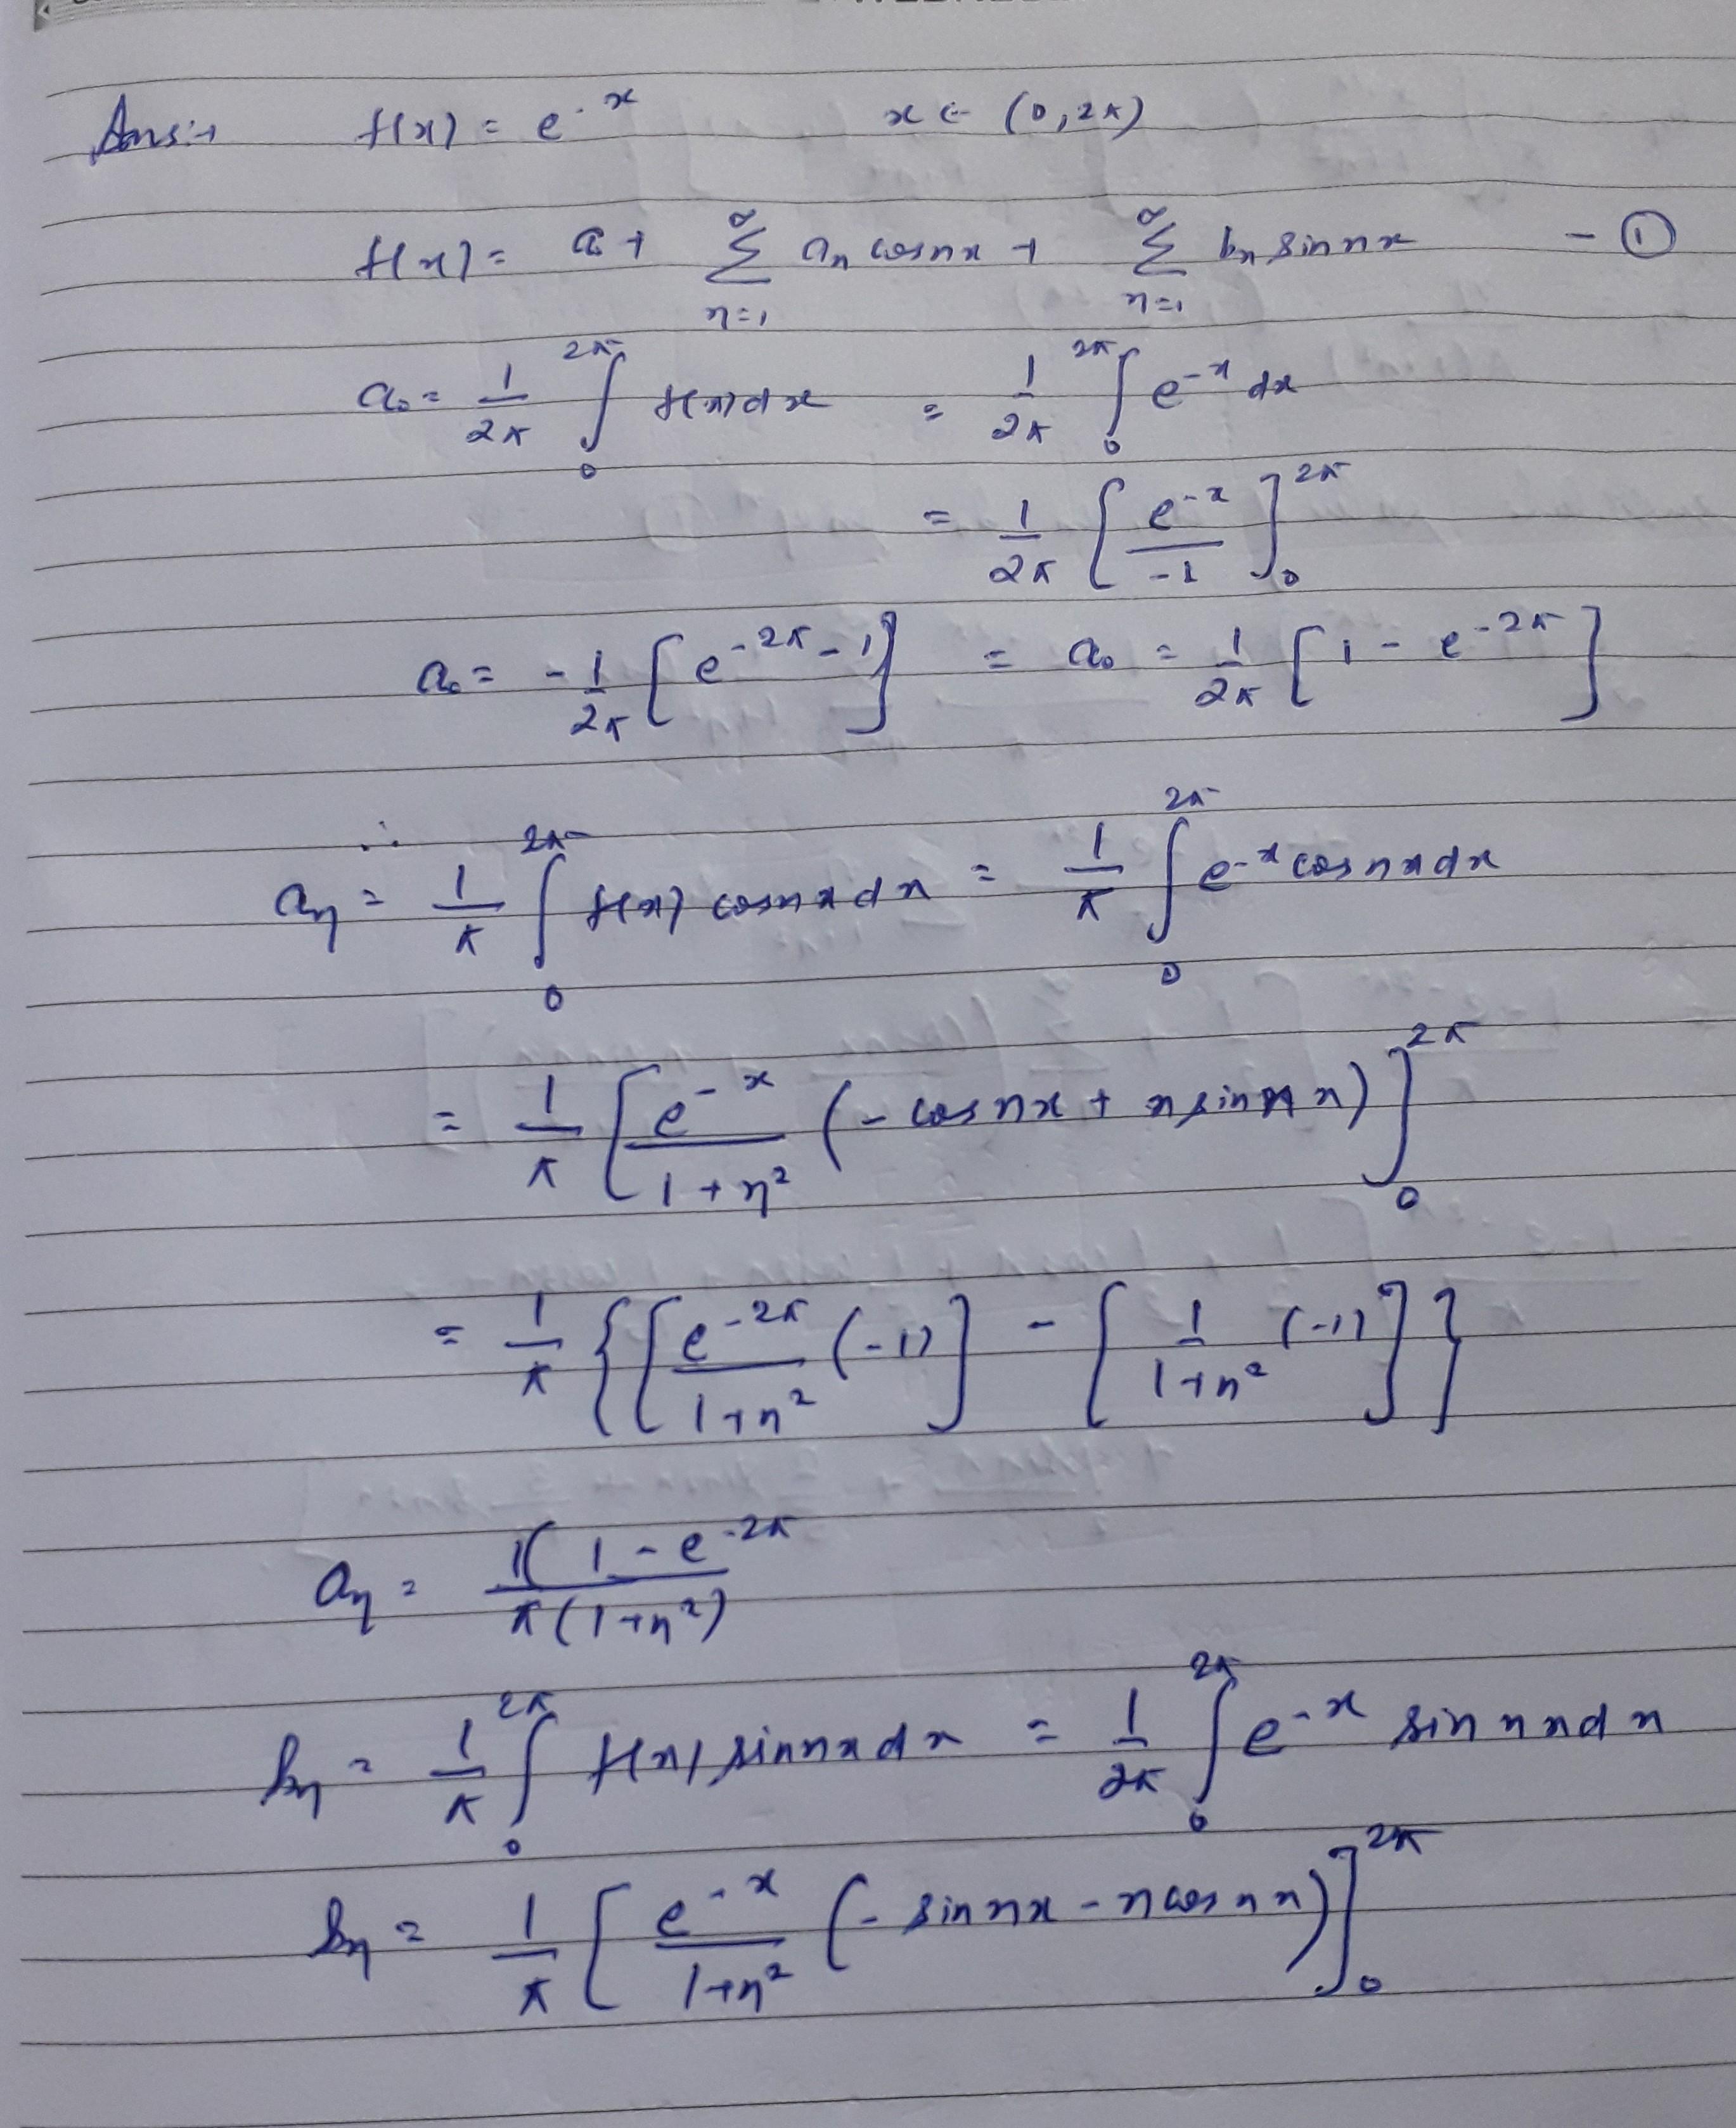 Ans:→ f(x) = e^-x x ∈ (0, 2π)
f(x) = a₀ + ∞∑n=1 aₙ cosnx + ∞∑n=1 bₙ sinnx - ①
a₀ = 1/2π ∫₀^2π f(x)dx = 1/2π ∫₀^2π e^-x dx
= 1/2π [e^-x/-1]₀^2π
a₀ = -1/2π [e^-2π - 1] = a₀ = 1/2π [1 - e^-2π]
∴
aₙ = 1/π ∫₀^2π f(x) cosnxdx = 1/π ∫₀^2π e^-x cosnxdx
= 1/π [e^-x/1+n² (-cosnx + n sinnx)]₀^2π
= 1/π {[e^-2π/1+n² (-1)] - [1/1+n² (-1)]}
aₙ = 1(1-e^-2π/π(1+n²)
bₙ = 1/π ∫₀^2π f(x) sinnxdx = 1/2π ∫₀^2π e^-x sinnxdx
bₙ = 1/π [e^-x/1+n² (-sinnx - ncosnx)]₀^2π